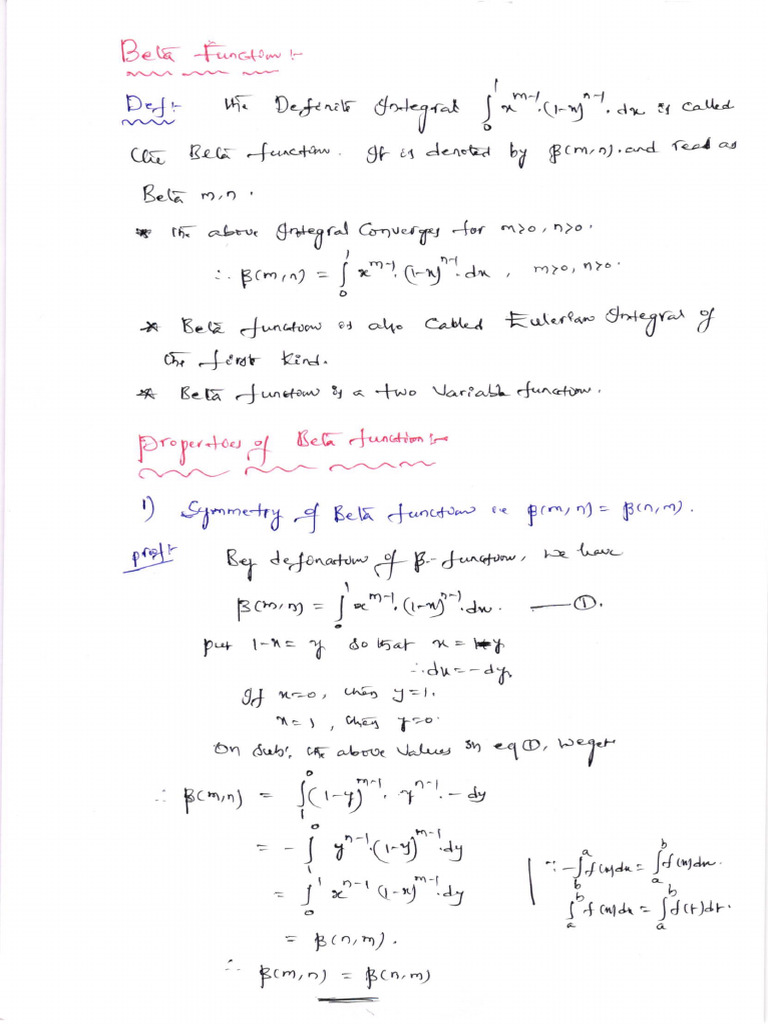 Beta Function:-
Def:- the Definite Integral ∫₀¹ x^{m-1}.(1-x)^{n-1}. dx is called
the Beta function. It is denoted by β(m,n). and read as
Beta m,n.
* the above Integral Converges for m>0, n>0.
∴ β(m,n) = ∫₀¹ x^{m-1}.(1-x)^{n-1}.dx , m>0, n>0.
* Beta function is also Called Eulerian Integral of
the first kind.
* Beta function is a two Variable function.
Properties of Beta function:-
1) Symmetry of Beta function i.e β(m,n) = β(n,m).
proof:- By defination of β-function, we have
β(m,n) = ∫₀¹ x^{m-1}.(1-x)^{n-1}.dx. —— ①.
put 1-x = y so that x = 1-y
∴ dx = -dy.
If x=0, then y=1.
x=1, then y=0.
On Sub; the above Values in eq ①, we get
∴ β(m,n) = ∫₁⁰ (1-y)^{m-1}. y^{n-1}. -dy
= - ∫₁⁰ y^{n-1}.(1-y)^{m-1}.dy
= ∫₀¹ x^{n-1} (1-x)^{m-1}.dy
= β(n,m).
∴ β(m,n) = β(n,m)
∵ -∫_b^a f(x)dx = ∫_a^b f(x)dx.
∫_a^b f(x)dx = ∫_a^b f(t)dt.